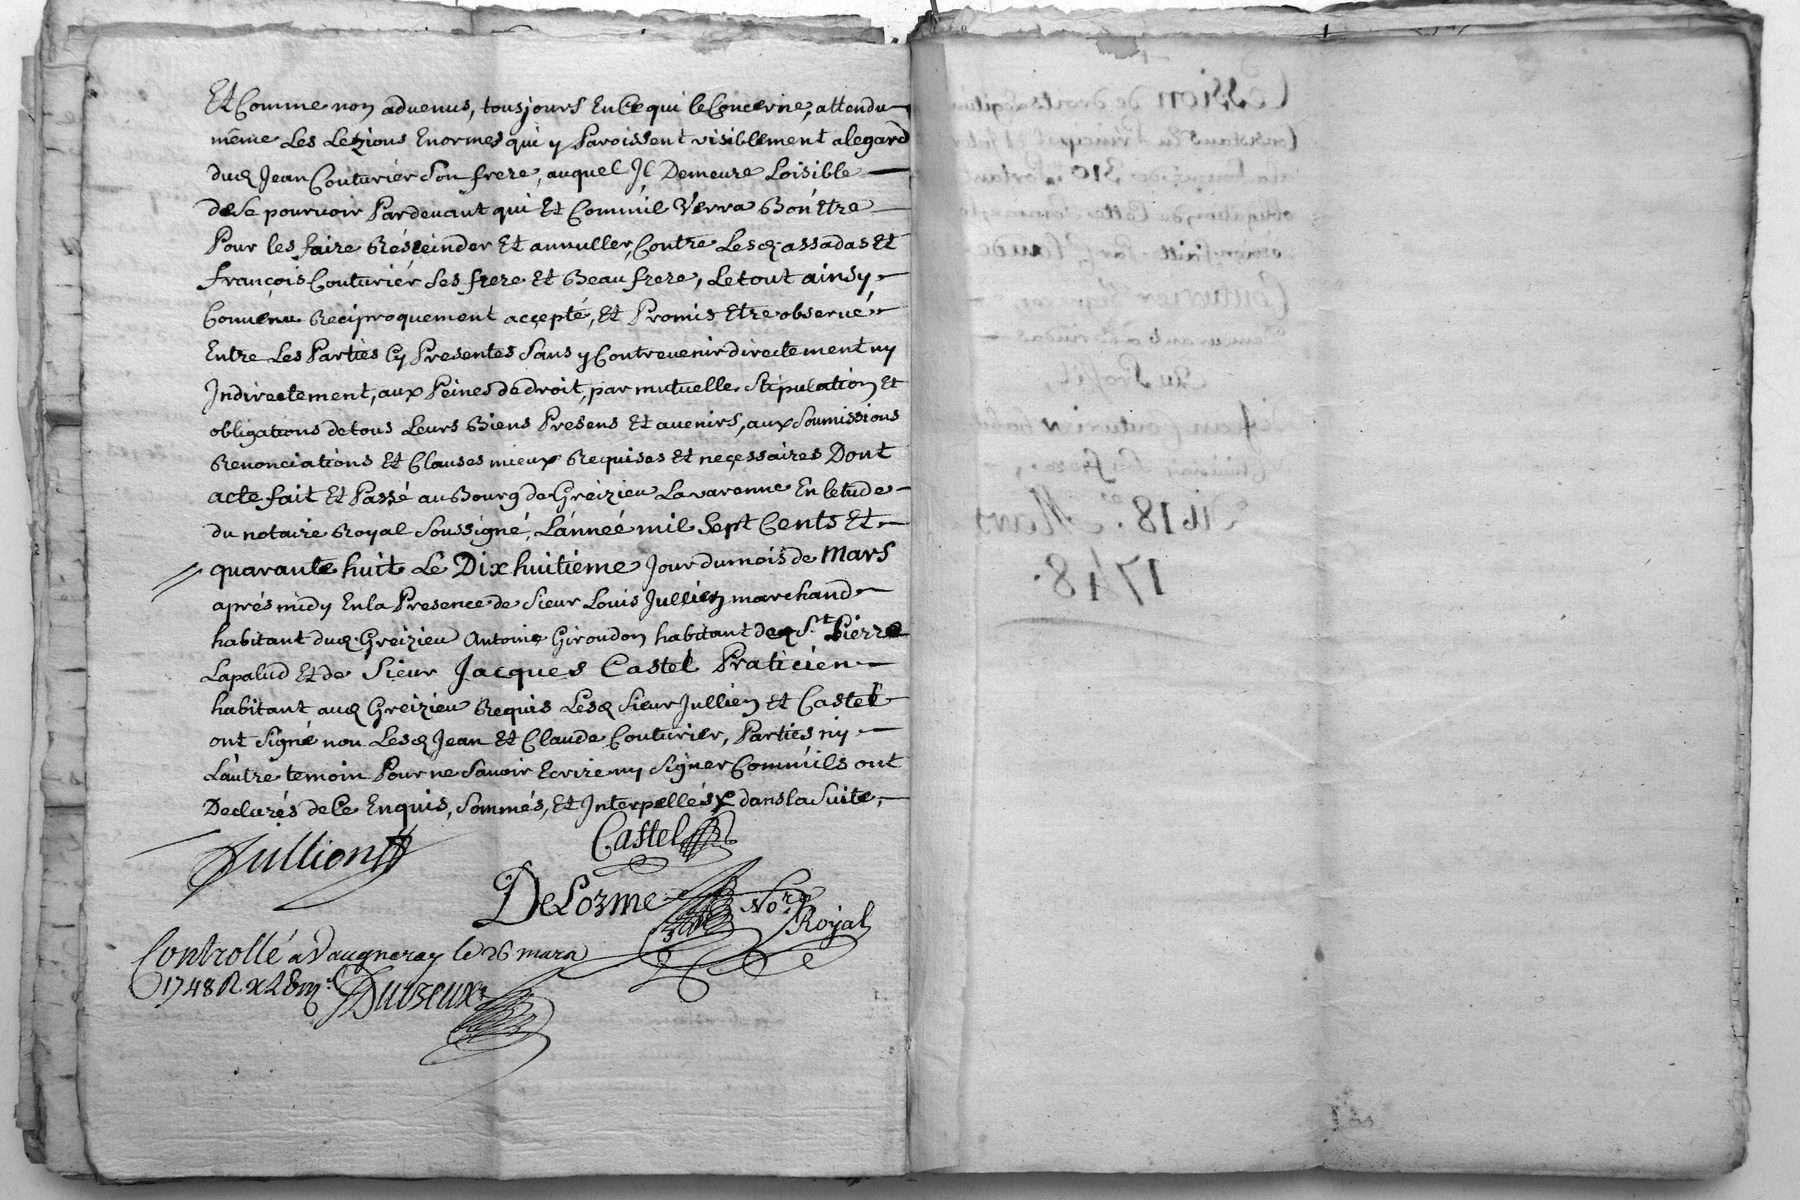 Et Comme non advenus, tousjours En Ce qui le Concerne, attendu
même Les Lezions Enormes qui y Paroissent visiblement a legard
dud Jean Couturier Son frere, auquel Il Demeure Loisible
de Se pourvoir Pardevant qui Et Comm'il Verra Bon Etre
Pour les faire Résceinder Et annuller, Contre Lesd. assadas Et
françois Couturier Ses frere Et Beaufrere, Le tout ainsy
Convenu Reciproquement accepté, Et Promis Etre observé
Entre Les Parties Cy Presentes Sans y Contrevenir directement ny
Indirectement, aux Peines de droit, par mutuelle Stipulation Et
obligations de tous Leurs Biens Presens Et avenirs, aux Soumissions
Renonciations Et Clauses mieux Requises Et neçessaires Dont
acte fait Et Passé au Bourg de Greizieu Lavarenne En letude
du notaire Royal Soussigné, L'année mil Sept Cents Et
quarante huit Le Dix huitieme Jour du mois de Mars
aprés midy En la Presence de Sieur Louis Jullien marchand
habitant dud. Greizieu Antoine Giroudon habitant de St. Pierre
Lapalud Et de Sieur Jacques Castel Praticien
habitant aud Greizieu Requis Lesd Sieur Jullien Et Castel
ont Signé non Lesd Jean Et Claude Couturier, Parties ny
L'autre temoin Pour ne Savoir Ecrire ny Signer Comm'ils ont
Declarés de Ce Enquis, Sommés, Et Interpellés dans la Suite,
Jullien
Castel
DeLorme Nore Royal
Controllé a Vaugneray le 26 mars
1748 R
Cession de droits
Constans En Principal Et
310
Couturier
Au Profit,
Jean Couturier
Du 18.e Mars
1748.